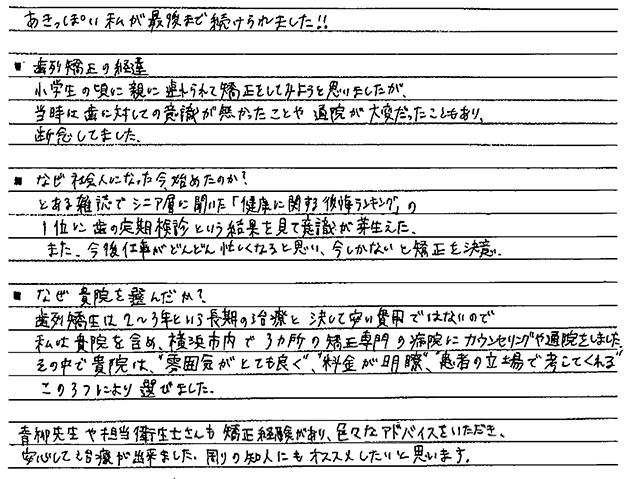 あきっぽい私が最後まで続けられました!!
■ 歯列矯正の経達
小学生の頃に親に連れられて矯正をしてみようと思いましたが、
当時は歯に対しての意識が無かったことや通院が大変だったこともあり、
断念してました。
■ なぜ社会人になった今始めたのか?
とある雑誌でシニア層に聞いた「健康に関する後悔ランキング」の
1位に歯の定期検診という結果を見て意識が芽生えた。
また、今後仕事がどんどん忙しくなると思い、今しかないと矯正を決意。
■ なぜ貴院を選んだか?
歯列矯生は2〜3年という長期の治療と決して安い費用ではないので
私は貴院を含め、横浜市内で3カ所の矯正専門の病院にカウンセリングや通院をしました
その中で貴院は、"雰囲気がとても良く"、"料金が明瞭"、"患者の立場で考えてくれる"
この3つにより選びました。
青柳先生や担当衛生士さんも矯正経験があり、色々なアドバイスをいただき、
安心して治療が出来ました。周りの知人にもオススメしたいと思います。